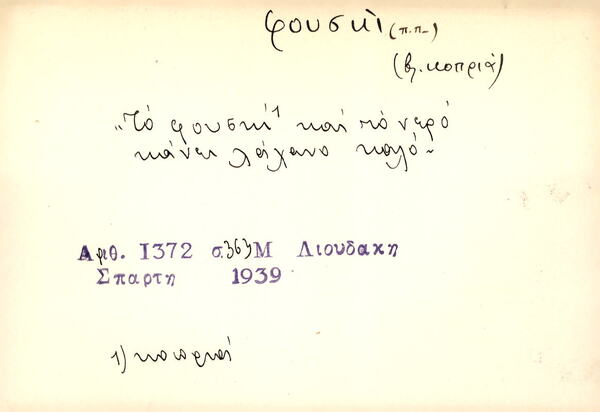 φουσκί (π.π.)
(βλ. κοπριά)
"Τό φουσκί¹ καί τό νερό
κάνει λάχανο καλό"
Αριθ. 1372 σ. 363 Μ Λιουδακη
Σπαρτη 1939
1) κοπριά